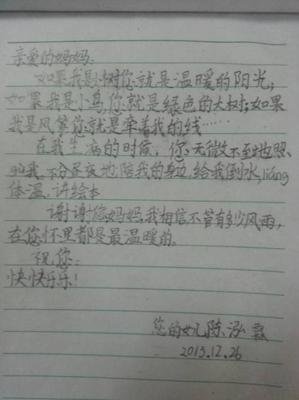 亲爱的妈妈:
如果我是树你就是温暖的阳光,
如果我是小鸟,你就是绿色的大树;如果
我是风筝你就是牵着我的线……
在我生病的时候,您无微不至地照
我,不分昼夜地陪我的身边,给我倒水,liáng
体温,讲绘本
谢谢您妈妈,我相信不管有多少风雨,
在您怀里都是最温暖的。
祝您:
快快乐乐!
您的女儿陈泓
2015.12.26